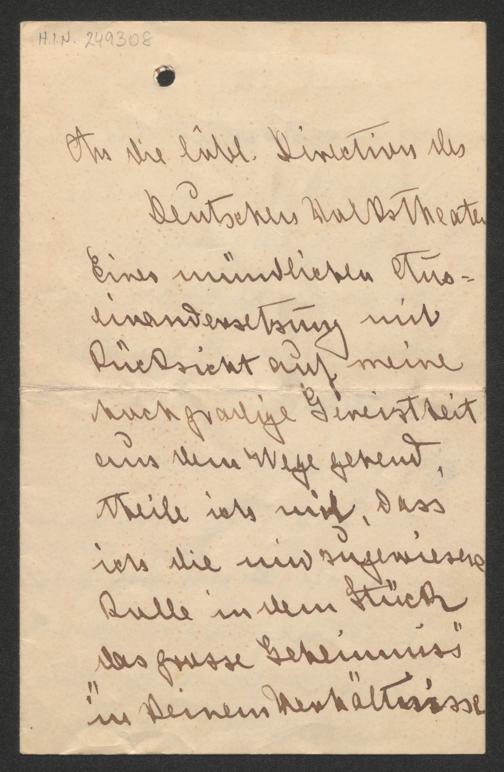 H.I.N. 249308
An die löbl. Direction des
Deutschen Volkstheaters
Einer mündlichen Aus=
einandersetzung mit
Rücksicht auf meine
hochgradige Gereiztheit
aus dem Wege gehend,
theile ich mit, dass
ich die mir zugewiesene
Rolle in dem Stück
das grosse Geheimniss"
"in keinem Verhältnisse